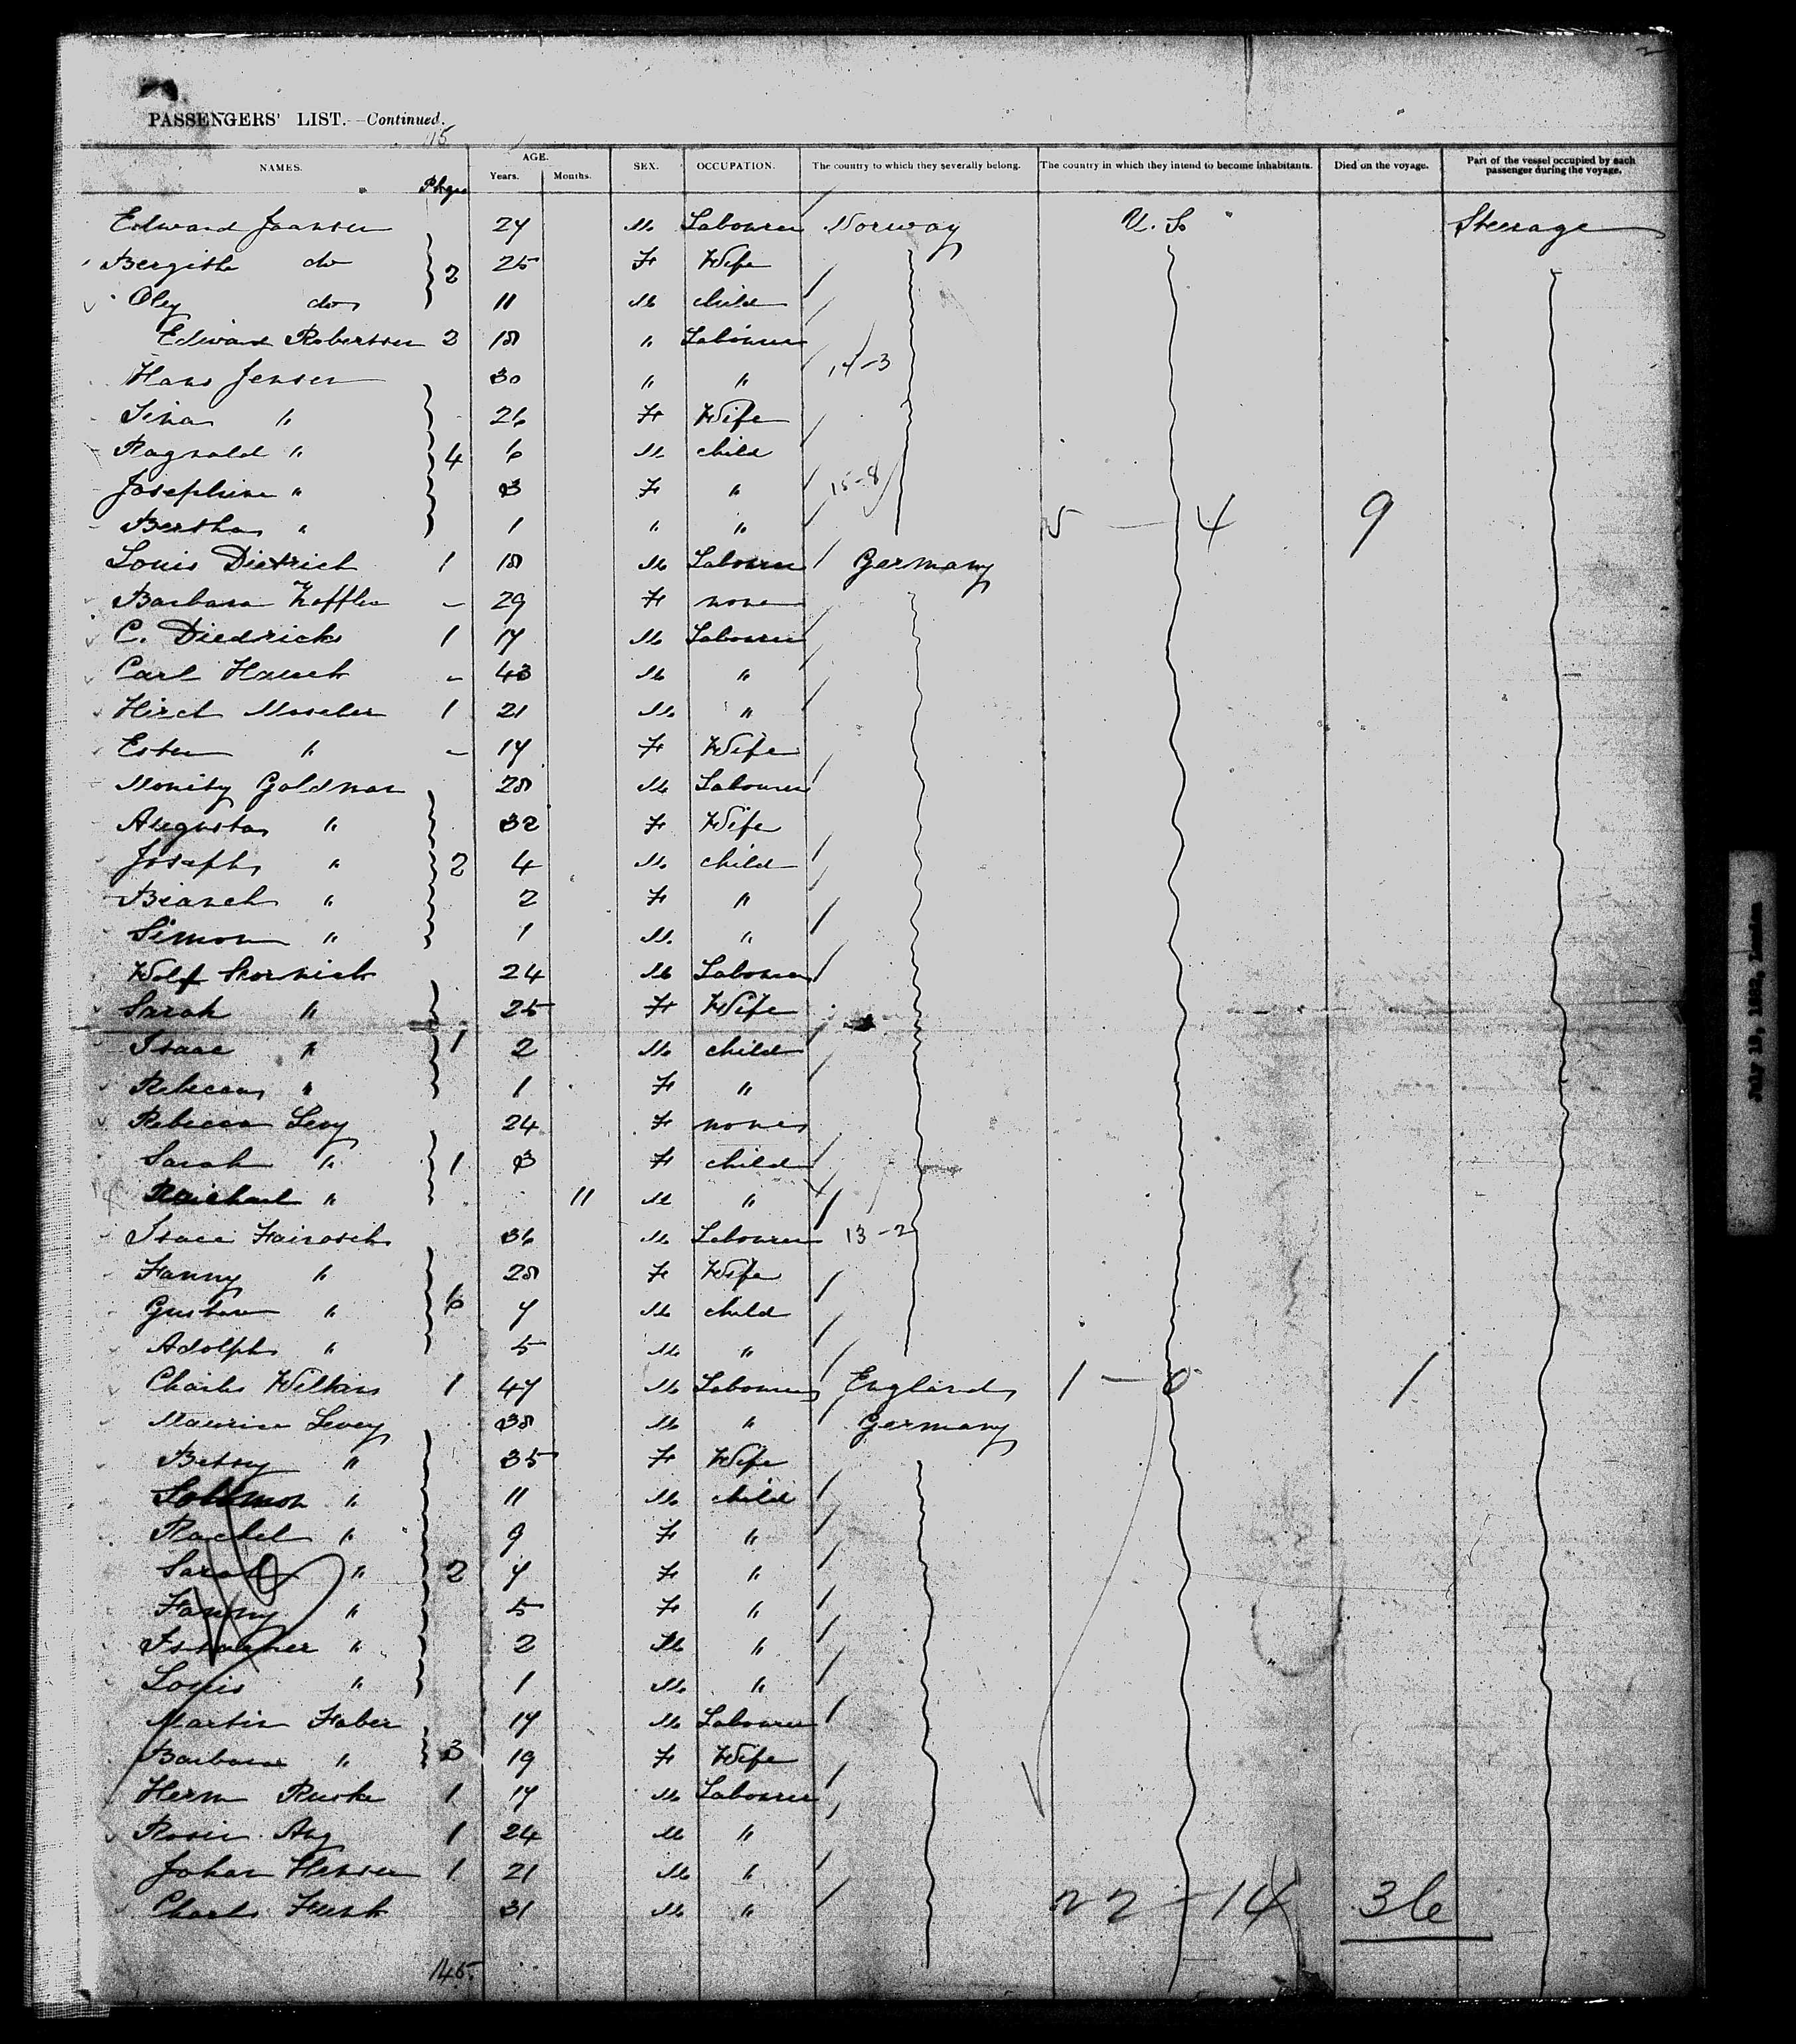 PASSENGERS' LIST.—Continued.
NAMES. Pkgs AGE. Years. Months. SEX. OCCUPATION. The country to which they severally belong. The country in which they intend to become inhabitants. Died on the voyage. Part of the vessel occupied by each passenger during the voyage.
Edward Jaansen 27 M Labourer Norway U.S. Steerage
do 2 25 F Wife
Oley do 11 M child
Edward Robertson 2 18 " Labourer
Hans Jensen 30 " " 14-3
Sina " 26 F Wife
Ragnald " 4 6 M child
Josephine " 3 F " 15-8
Bertha " 1 " " 5 — 4 9
Louis Dietrich 1 18 M Labourer Germany
Barbara - 29 F none
C. Diedricks 1 17 M Labourer
Carl Hauck - 43 M "
Hirch Moseler 1 21 M "
Ester " - 17 F Wife
Goldman 28 M Labourer
Augusta " 32 F Wife
Joseph " 2 4 M child
" 2 F "
Simon " 1 M "
Wolf 24 M Labourer
Sarah " 25 F Wife
Isaac " 1 2 M child
Rebecca " 1 F "
Rebecca Levy 24 F none
Sarah " 1 3 F child
" 11 M "
Isaac 36 M Labourer 13-2
Fanny " 28 F Wife
Gustav " 6 7 M child
Adolph " 5 M "
Charles Wilkins 1 47 M Labourer England 1 — 0 1
Maurice Levey 38 M " Germany
Betsy " 35 F Wife
Solomon " 11 M child
Rachel " 9 F "
Sarah " 2 7 F "
Fanny " 5 F "
" 2 M "
Louis " 1 M "
Martin Faber 17 M Labourer
Barbara " 3 19 F Wife
Herm Ruske 1 17 M Labourer
1 24 M "
Johan Hensen 1 21 M "
Charles 31 M " 22 - 14 36
145
July 13, 1882, London